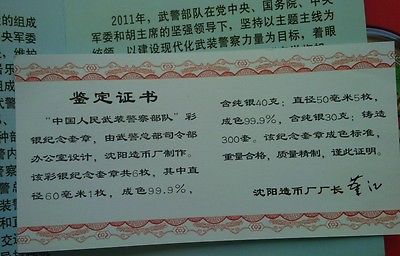 的组成
2011年，武警部队在党中央、国务院、中央
央军委
军委和胡主席的坚强领导下，坚持以主题主线为
统领，以建设现代化武装警察力量为目标，着眼
鉴定证书
“中国人民武装警察部队”彩
银纪念套章，由武警总部司令部
办公室设计，沈阳造币厂制作。
该彩银纪念套章共6枚，其中直
径60毫米1枚，成色99.9%，
含纯银40克；直径50毫米5枚，
成色99.9%，含纯银30克；铸造
300套。该纪念套章成色标准，
重量合格，质量精制，谨此证明。
沈阳造币厂厂长